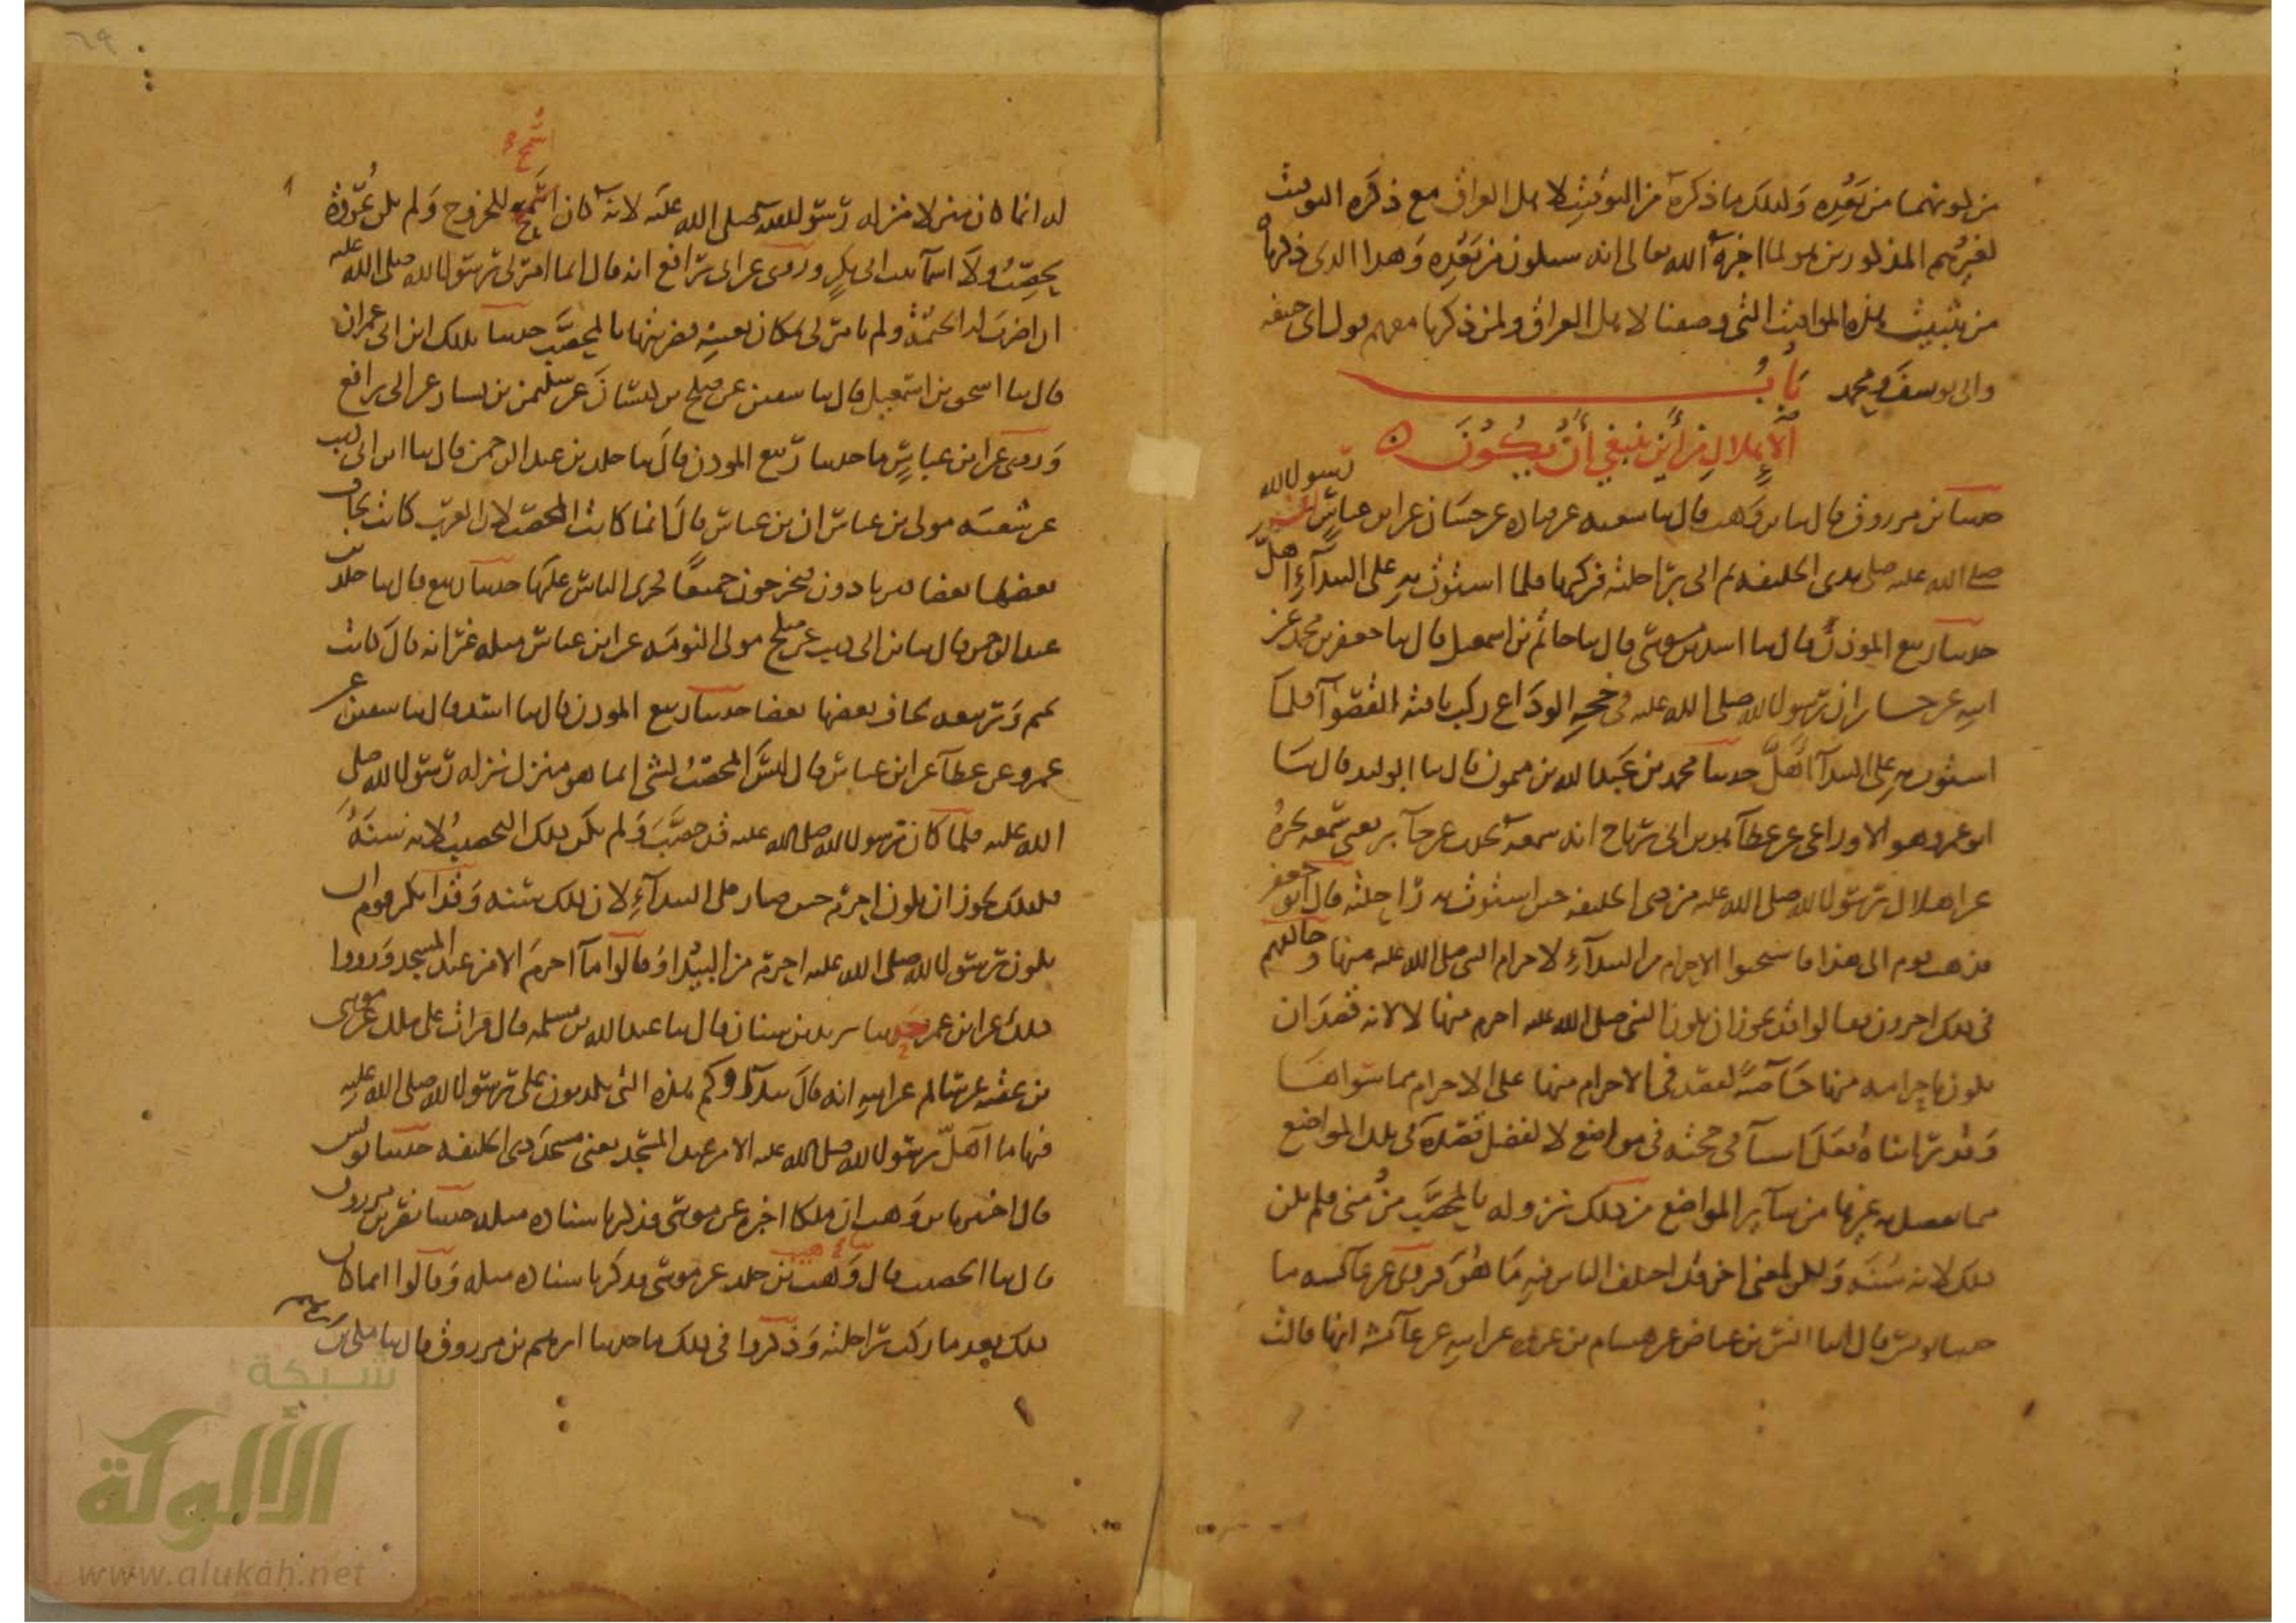 من كونهما من بعده وكذلك ما ذكره من التوقيت لاهل العراق مع ذكره التوقيت
لغيرهم المذكورين هو لما اخبره الله تعالى انه سيكون من بعده وهذا الذي ذكرناه
من تثبيت هذه المواقيت التي وصفنا لاهل العراق ولمن ذكرنا معهم قول ابي حنيفه
وابي يوسف ومحمد باب
الاهلال من أين ينبغي أن يكون
حدثنا بن مرزوق قال ثنا بن وهب قال ثنا شعبه عن قتاده عن حسان عن ابن عباس ان رسول الله
صلى الله عليه صلى بذي الحليفه ثم اتى براحلته فركبها فلما استوت به على البيدآء اهل
حدثنا ربيع المؤذن قال ثنا اسد بن موسى قال ثنا حاتم بن اسمعيل قال ثنا جعفر بن محمد عن
ابيه عن جابر ان رسول الله صلى الله عليه في حجه الوداع ركب ناقته القصوآ فلما
استوت به على البيدآ اهل حدثنا محمد بن عبد الله بن ميمون قال ثنا الوليد قال ثنا
ابو عمرو هو الاوزاعي عن عطآ بن ابي رباح انه سمعه يحدث عن جابر يعني سمعه يخبر
عن اهلال رسول الله صلى الله عليه من ذي الحليفه حين استوت به راحلته قال ابو جعفر
فذهب قوم الى هذا فاستحبوا الاحرام من البيدآء لاحرام النبي صلى الله عليه منها وخالفهم
في ذلك اخرون فقالوا قد يجوز ان يكون النبي صلى الله عليه احرم منها لا لانه قصد ان
يكون احرامه منها خاصه لفضل في الاحرام منها على الاحرام مما سواها
وقد رايناه فعل اشيآ في حجته في مواضع لا لفضل قصده في تلك المواضع
مما يفضل به غيرها من سآير المواضع من ذلك نزوله بالمحصب من منى فلم يكن
ذلك لانه سنه ولكن لمعنى اخر قد اختلف الناس فيه ما هو فروي عن عآئشه ما
حدثنا يونس قال ثنا انس بن عياض عن هشام بن عروه عن ابيه عن عآئشه انها قالت
اسمح
له انما كان منزلا نزله رسول الله صلى الله عليه لانه كان اسمح للخروج ولم يكن عروة
يحصب ولا اسمآ بنت ابي بكر وروي عن ابي رافع انه قال انما امرني رسول الله صلى الله عليه
ان اضرب له الخيمة ولم يامرني بمكان بعينه فضربتها بالمحصب حدثنا بذلك ابن ابي عمران
قال ثنا اسحق بن اسمعيل قال ثنا سفين عن صلح بن كيسان عن سليمن بن يسار عن ابي رافع
وروي عن ابن عباس ما حدثنا ربيع المؤذن قال ثنا خلد بن عبد الرحمن قال ثنا ابن ابي ذيب
عن شعبه مولى بن عباس ان بن عباس قال انما كانت المحصب لان العرب كانت تخاف
بعضها بعضا فيرتادون فيخرجون جميعا فجرى الناس عليها حدثنا ربيع قال ثنا خلد بن
عبد الرحمن قال ثنا بن ابي ذيب عن صلح مولى التومه عن ابن عباس مثله غير انه قال كانت
تميم وربيعه يخاف بعضها بعضا حدثنا ربيع المؤذن قال ثنا اسد قال ثنا سفين عن
عمرو عن عطآ عن ابن عباس قال ليس المحصب بشئ انما هو منزل نزله رسول الله صلى
الله عليه فلما كان رسول الله صلى الله عليه قد حصب ولم يكن ذلك التحصيب لانه سنة
فكذلك يجوز ان يكون احرم حين صار على البيدآء لا ان ذلك سنه وقد انكر قوم ان
يكون رسول الله صلى الله عليه احرم من البيدا وقالوا ما احرم الا من عند المسجد ورووا
ذلك عن ابن عمر حدثنا يزيد بن سنان قال ثنا عبد الله بن مسلمه قال قرات على ملك عن موسى
بن عقبه عن سالم عن ابيه انه قال بيدآؤكم هذه التي تكذبون على رسول الله صلى الله عليه
فيها ما اهل رسول الله صلى الله عليه الا من عند المسجد يعني مسجد ذي الحليفه حدثنا يونس
قال اخبرنا بن وهب ان ملكا اخبره عن موسى فذكر باسناده مثله حدثنا نصر بن مرزوق
قال ثنا الخصيب قال ثنا وهيب بن خلد عن موسى فذكر باسناده مثله وقالوا انما كان
ذلك بعد ما ركب راحلته وذكروا في ذلك ما حدثنا ابرهيم بن مرزوق قال ثنا مكي بن ابرهيم
شبكة
الألوكة
www.alukah.net